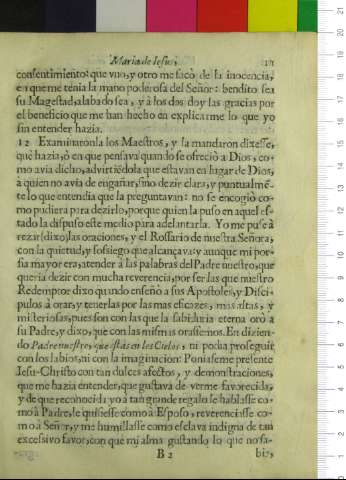 Maria de Iesus,
consentimiento: que vno, y otro me sacò de la inocencia,
en que me tenia la mano poderosa del Señor: bendito sea
su Magestad, alabado sea, y à los dos doy las gracias por
el beneficio que me han hecho en explicarme lo que yo
sin entender hazia.
12 Examinaronla los Maestros, y la mandaron dixesse,
què hazia, ò en que pensava quando se ofreciò a Dios, co-
mo avia dicho, advirtiẽdola que estavan en lugar de Dios,
à quien no avia de engañar, sino dezir clara, y puntualmẽ-
te lo que entendia que la preguntavan: no se encogiò co-
mo pudiera para dezirlo, porque quien la puso en aquel es-
tado la dispuso este medio para adelantarla. Yo me puse à
rezar (dixo) las oraciones, y el Rossario de nuestra Señora,
con la quietud, y sossiego que alcançava; y aunque mi por-
fia mayor era, atender a las palabras del Padre nuestro, que
queria dezir con mucha reverencia, por ser las que nuestro
Redemptor dixo quando enseñò a sus Apostoles, y Disci-
pulos à orar, y tenerlas por las mas eficazes, mas altas, y
misteriosas, pues son con las que la sabiduria eterna orò a
su Padre, y dixo, que con las mismas orassemos. En dizien-
do Padre nuestro, que estàs en los Cielos, ni podia proseguir
con los labios, ni con la imaginacion: Poniaseme presente
Jesu-Christo con tan dulces afectos, y demonstraciones,
que me hazia entender, que gustava de verme favorecida,
y de que reconocida yo a tan grande regalo le hablasse co-
mo à Padre, le quisiesse como à Esposo, reverenciasse co-
mo à Señor, y me humillasse como esclava indigna de tan
excessivo favor, con que mi alma gustando lo que no sa-
B 2
bia,